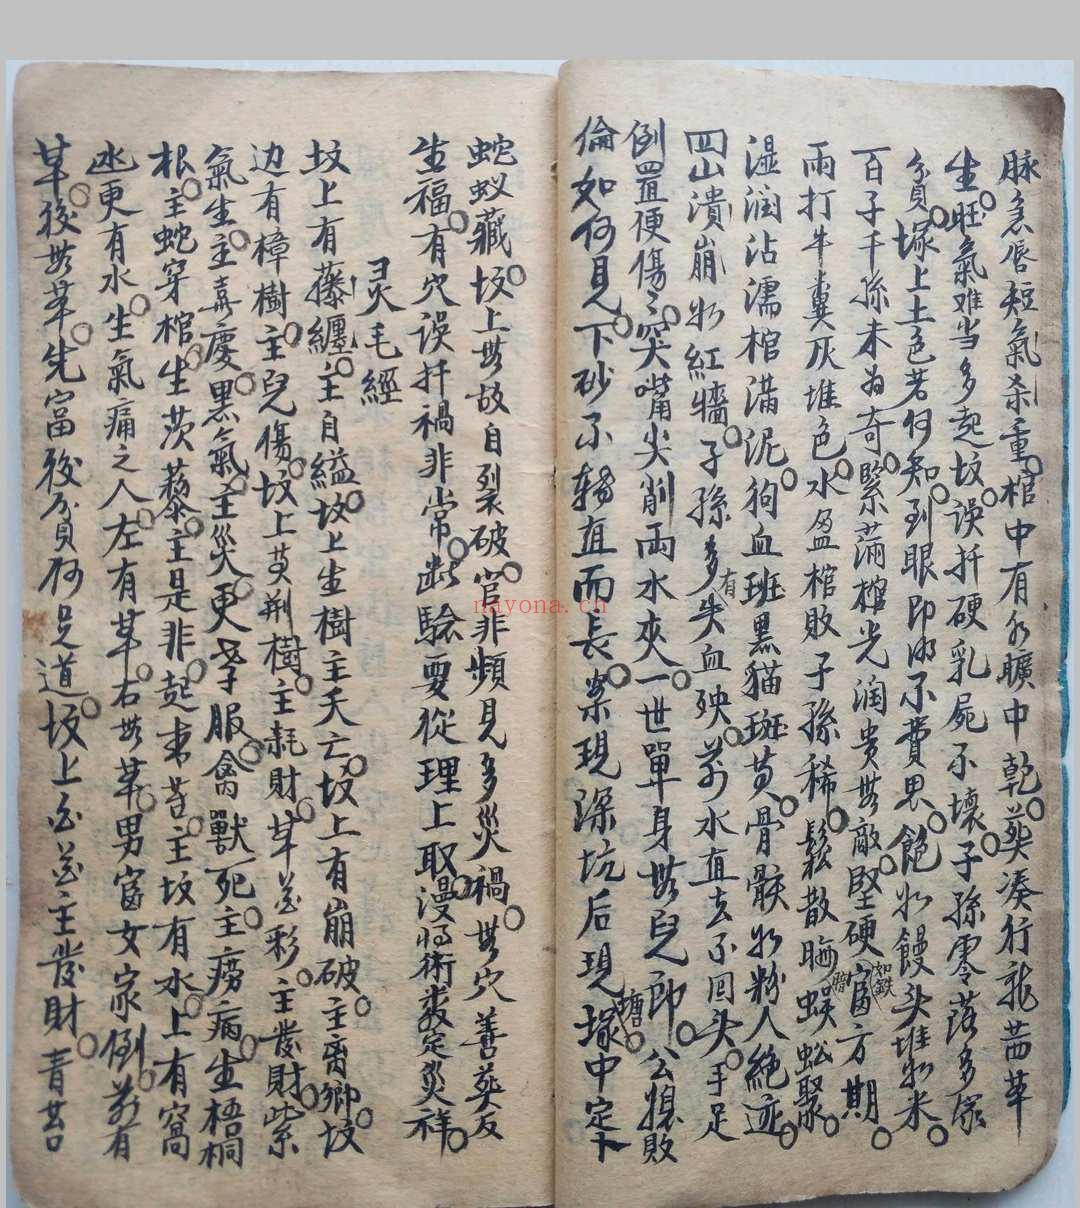 脉急唇短氣杀重棺中有水曠中乾葵凑行龙茜草
生旺氣难当多起坟误扦硬乳屍不壞子孫零落多家
貟塚上土色若何知到眼即明不費思飽如饅头堆如米
百子千孫未为奇緊滿棺光润贵無敵堅硬如鉄富方期
雨打牛糞灰堆色水盈棺敗子孫稀鬆散晦暗蜈蚣聚
湿润沾濡棺满泥狗血班黑貓斑黄骨骸如粉人絶迹
四山潰崩如紅牆子孫多有失血殃前水直去不回头手足
例置便傷亡突嘴尖削両水夾一世單身無兒郎公穗敗
倫如何見下砂不轉直而長案現深坑后現塘塚中定卜
蛇蚁藏坟上無故自裂破官非頻見多災禍無穴善葬反
生福有穴误扦禍非常断驗要從理上取漫将術数定災祥
灵毛經
坟上有藤纏主自縊坟上生樹主夭亡坟上有崩破主离鄉坟
边有樟樹主兒傷坟上黄荆樹主耗財草花彩主發財紫
氣生主喜慶黑氣主災更孝服禽獸死主痨病生梧桐
根主蛇穿棺生茨藜主是非起青苔主坟有水上有窩
更有水生氣痛之人左有草右無草男富女家倒前有
草後無草先富後貟何足道坟上白花主發財青苔
nayona.cn